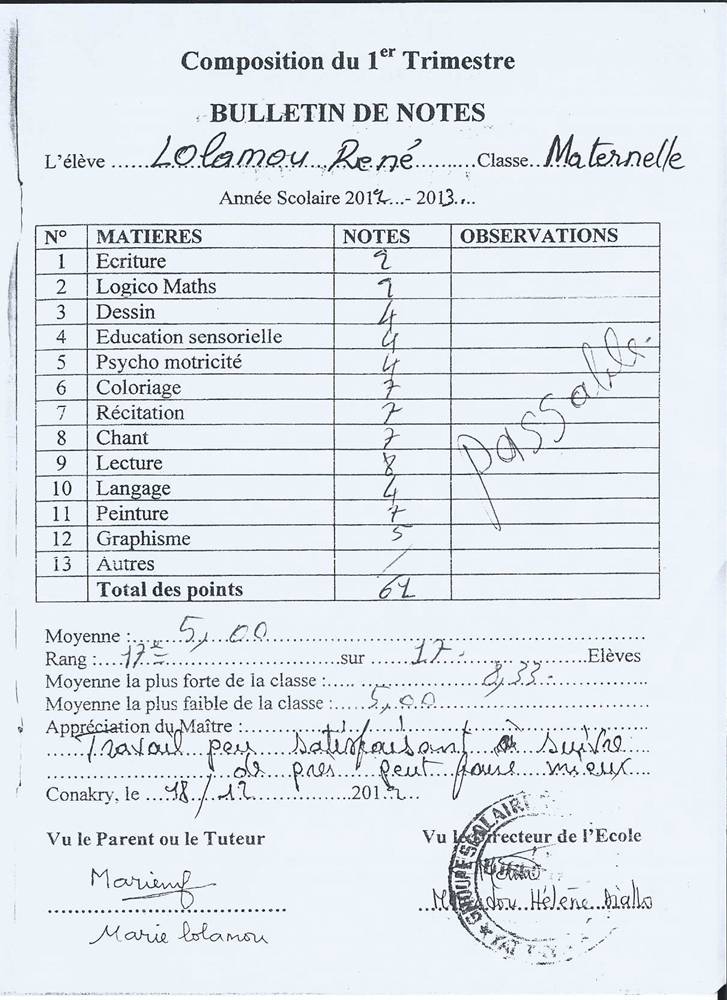 Composition du 1er Trimestre
BULLETIN DE NOTES
L'élève ...... Lolamou René ...........Classe.. Maternelle
Année Scolaire 2012...- 2013....
N° MATIERES NOTES OBSERVATIONS
1 Ecriture 2
2 Logico Maths 2
3 Dessin 4
4 Education sensorielle 4
5 Psycho motricité 4
6 Coloriage 7
7 Récitation 7
8 Chant 7
9 Lecture 8
10 Langage 4
11 Peinture 7
12 Graphisme 5
13 Autres /
Total des points 61
Passable.
Moyenne : 5,00
Rang : 17e sur 17 Elèves
Moyenne la plus forte de la classe : 8,33
Moyenne la plus faible de la classe : 5,00
Appréciation du Maître :
Travail peu satisfaisant à suivre
de près peut faire mieux
Conakry, le 18/12 2012
Vu le Parent ou le Tuteur Vu le Directeur de l'Ecole
Marie lolamou
Hélène Diallo
GROUPE SCOLAIRE